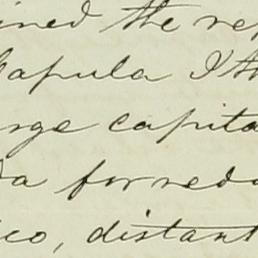 ined the re
apula I th
rge capita
da forneda
ico, distant